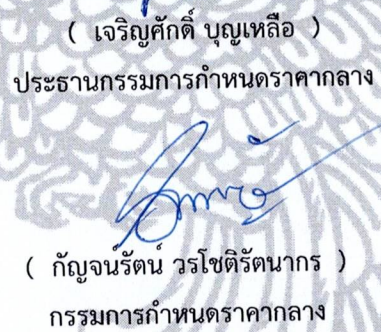 ( เจริญศักดิ์ บุญเหลือ )
ประธานกรรมการกำหนดราคากลาง
( กัญจน์รัตน์ วรโชติรัตนากร )
กรรมการกำหนดราคากลาง